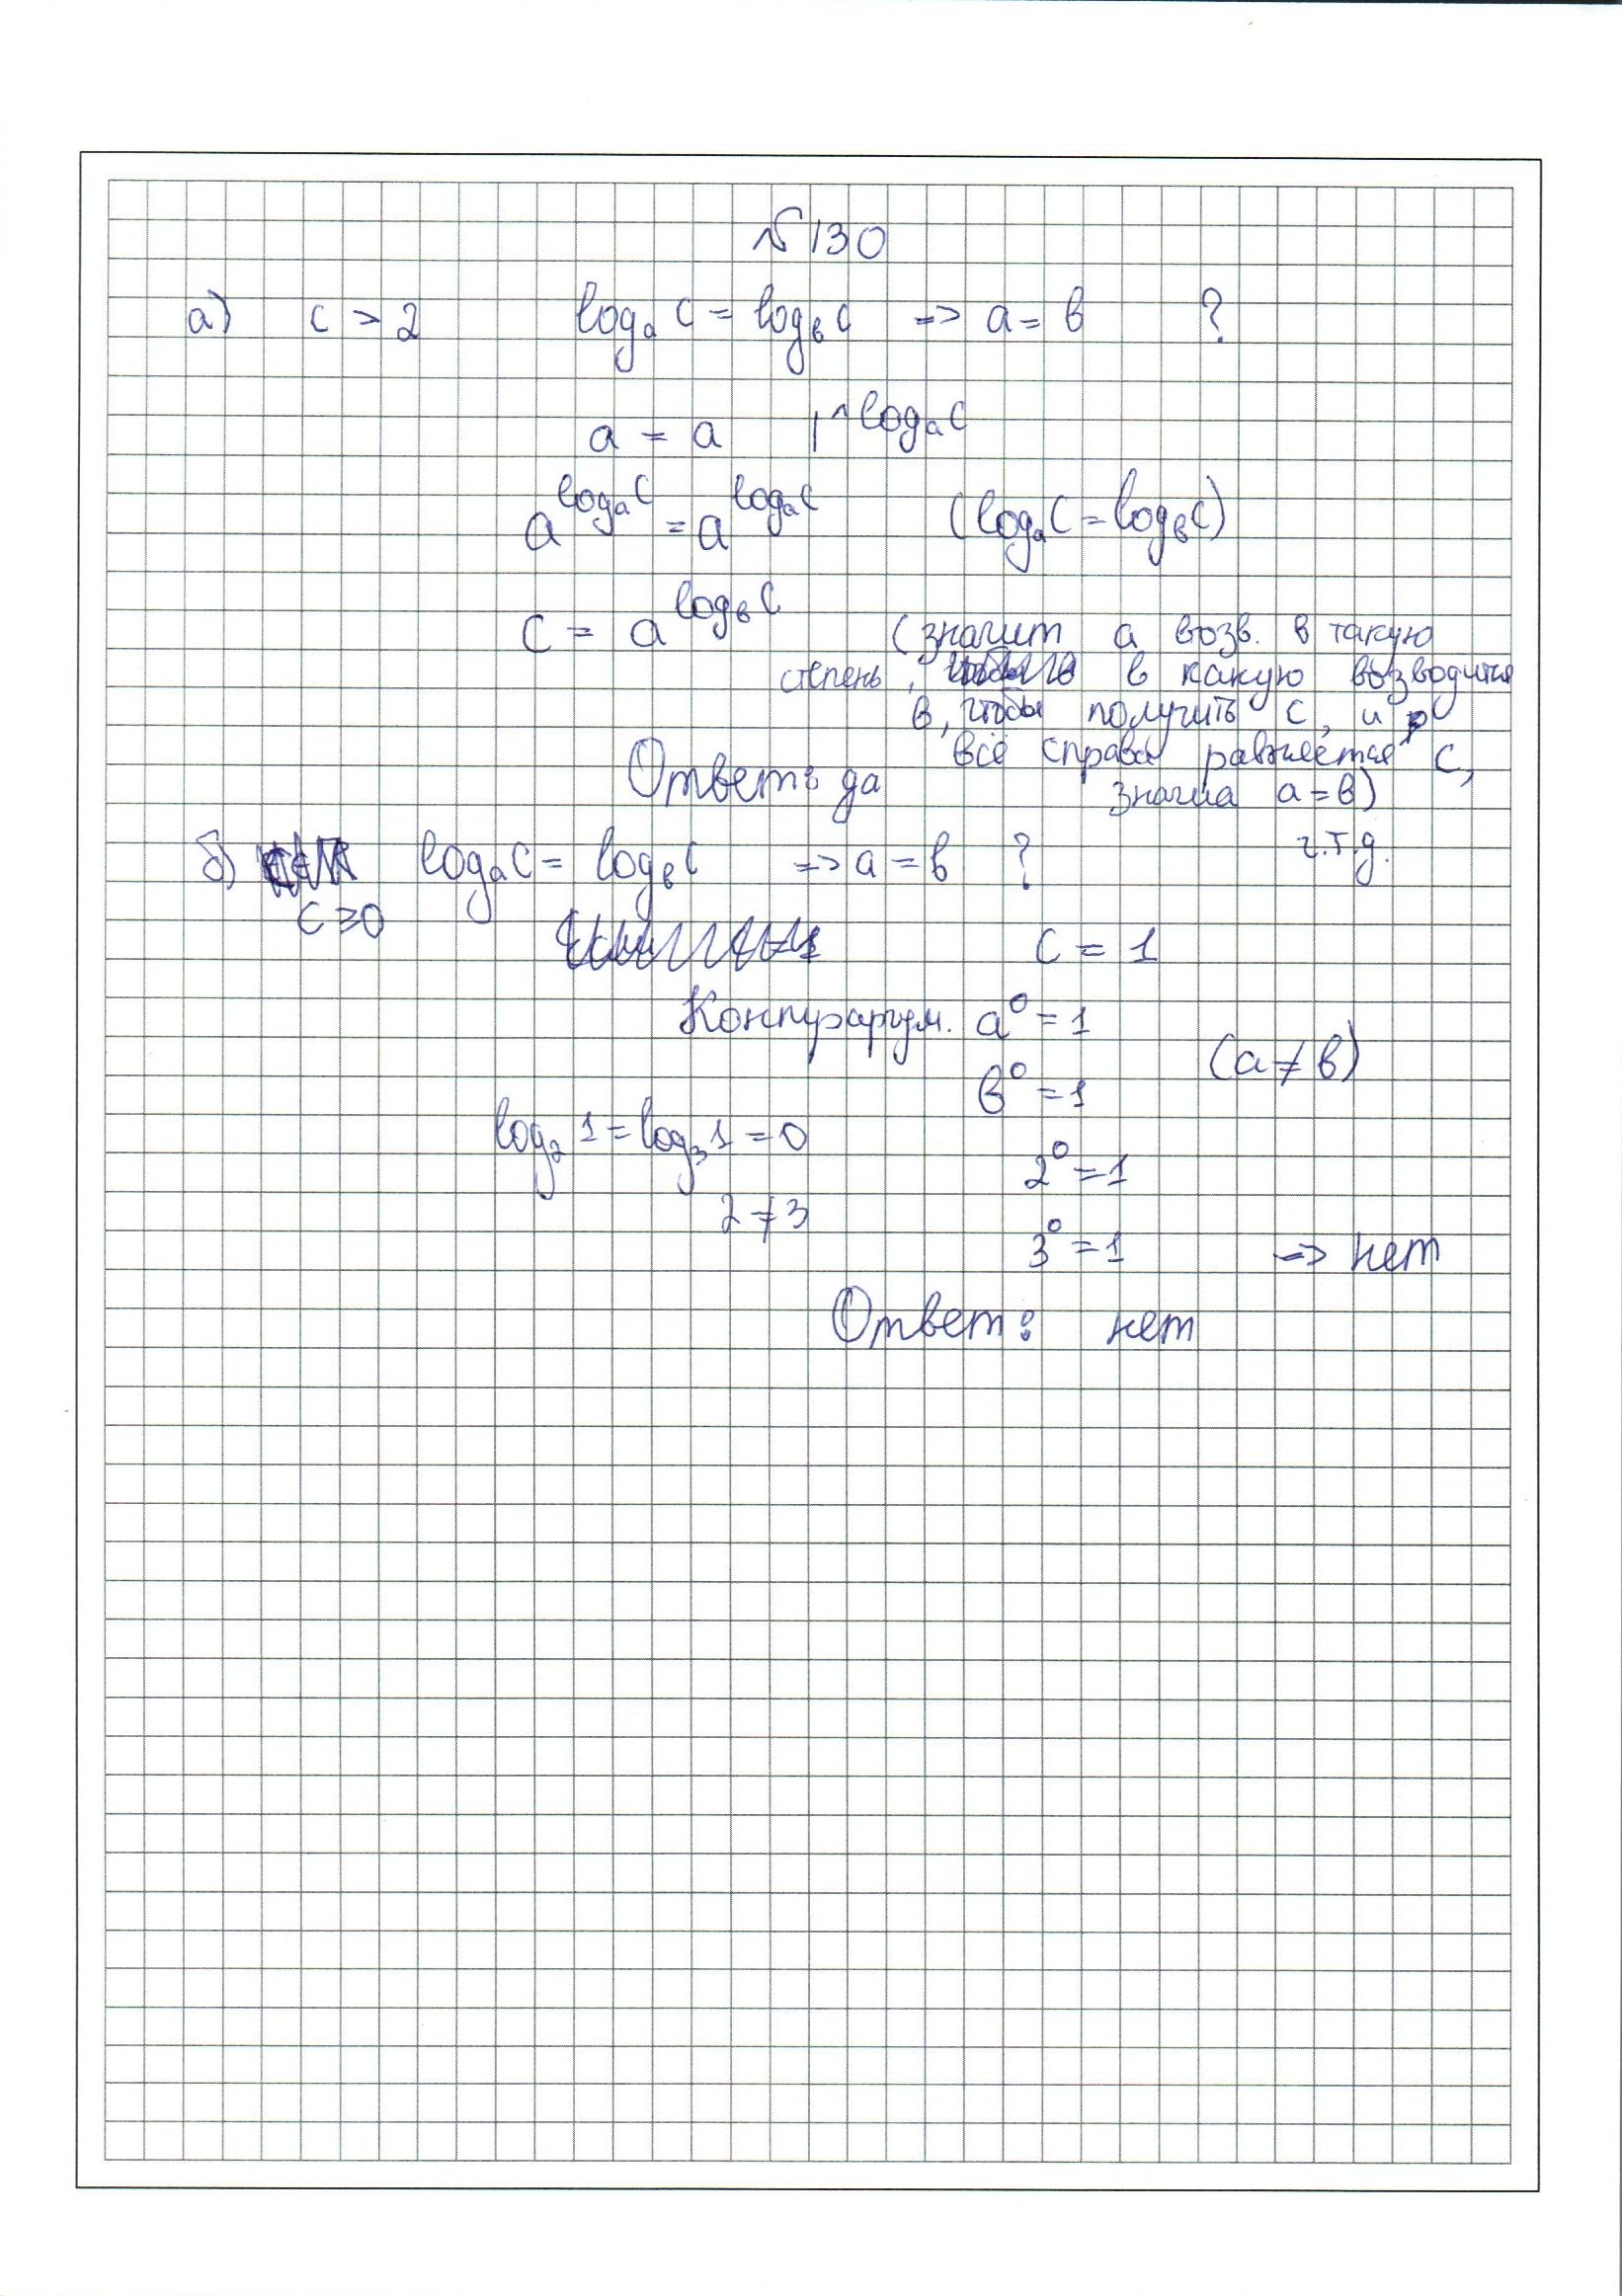 №130
а) c > 2 logₐ c = log_в c => a = в ?
a = a |^logₐc
a^logₐc = a^logₐc (logₐc = log_вc)
c = a^log_вc (значит a возв. в такую
степень, в какую возводится
в, чтобы получить c, и
всё справа равняется c,
Ответ: да
a = в)
ч.т.д.
б) logₐc = log_вc => a = в ?
c ≥ 0
c = 1
a⁰ = 1
(a ≠ в)
в⁰ = 1
log₂ 1 = log₃ 1 = 0
2⁰ = 1
2 ≠ 3
3⁰ = 1 => нет
Ответ: нет